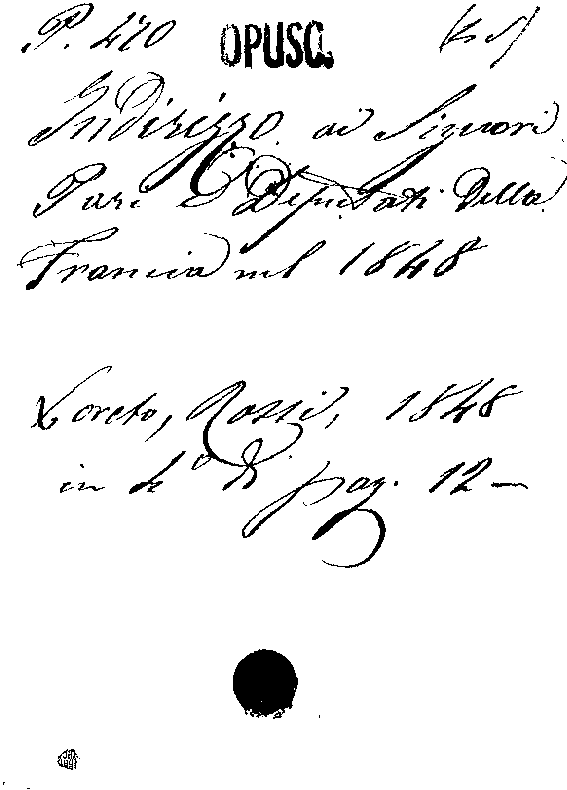 P. 470 OPUSC.
Indirizzo ai Signori
Pari e Deputati della
Francia nel 1848
Loreto, Rossi, 1848
in 4° di pag. 12 —